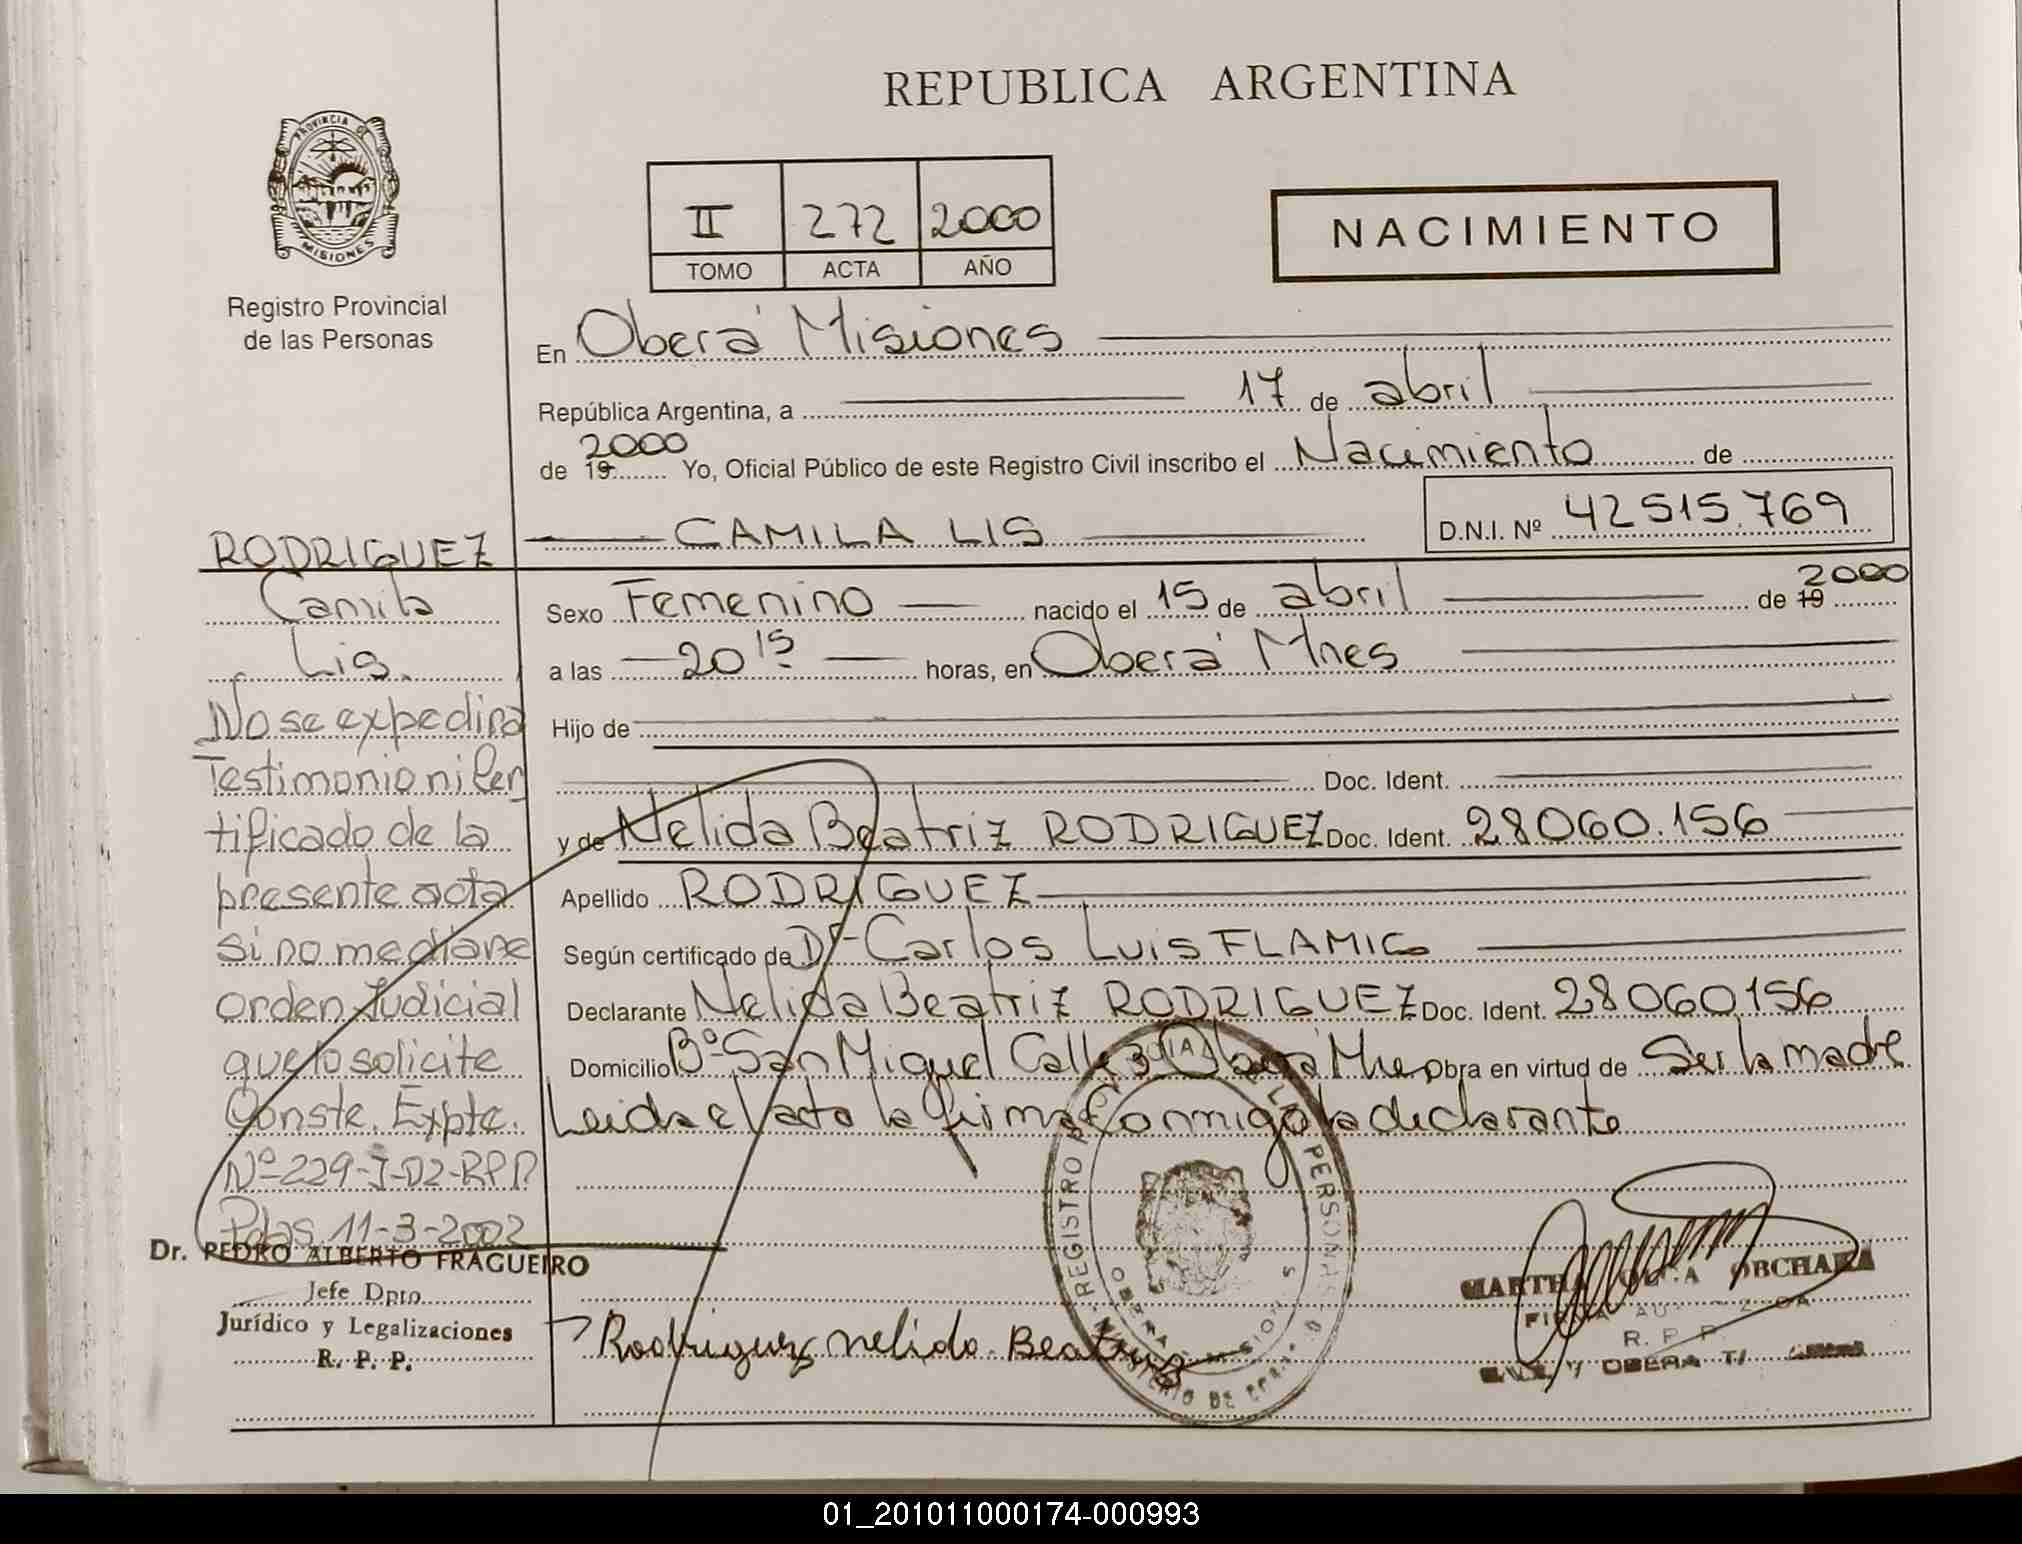 REPUBLICA ARGENTINA
PROVINCIA DE
MISIONES
Registro Provincial
de las Personas
II 272 2000
TOMO ACTA AÑO
NACIMIENTO
En Oberá Misiones
República Argentina, a 17 de abril
de 19 2000 Yo, Oficial Público de este Registro Civil inscribo el Nacimiento de
CAMILA LIS D.N.I. Nº 42515.769
Sexo Femenino nacido el 15 de abril de 19 2000
a las 20 15 horas, en Oberá Mnes
Hijo de
Doc. Ident.
y de Nelida Beatriz RODRIGUEZ Doc. Ident. 28060.156
Apellido RODRIGUEZ
Según certificado de Dr Carlos Luis FLAMIG
Declarante Nelida Beatriz RODRIGUEZ Doc. Ident. 28060156
Domicilio Bº San Miguel Calle 3 Oberá Mnes Obra en virtud de Ser la madre
Leida el acta la firma Conmigo la declarante
RODRIGUEZ
Camila
Lis.
No se expedira
Testimonio ni Cer
tificado de la
presente acta
si no mediane
orden Judicial
que lo solicite
Conste. Expte.
Nº 229-J-02-RPP
Pdas 11-3-2002
Dr. PEDRO ALBERTO FRAGUEIRO
Jefe Dpto.
Jurídico y Legalizaciones
R. P. P.
Rodriguez Nelida Beatriz
REGISTRO PERSONAS
MARTHA ORCHARA
R. P. P.
OBERA
01_201011000174-000993